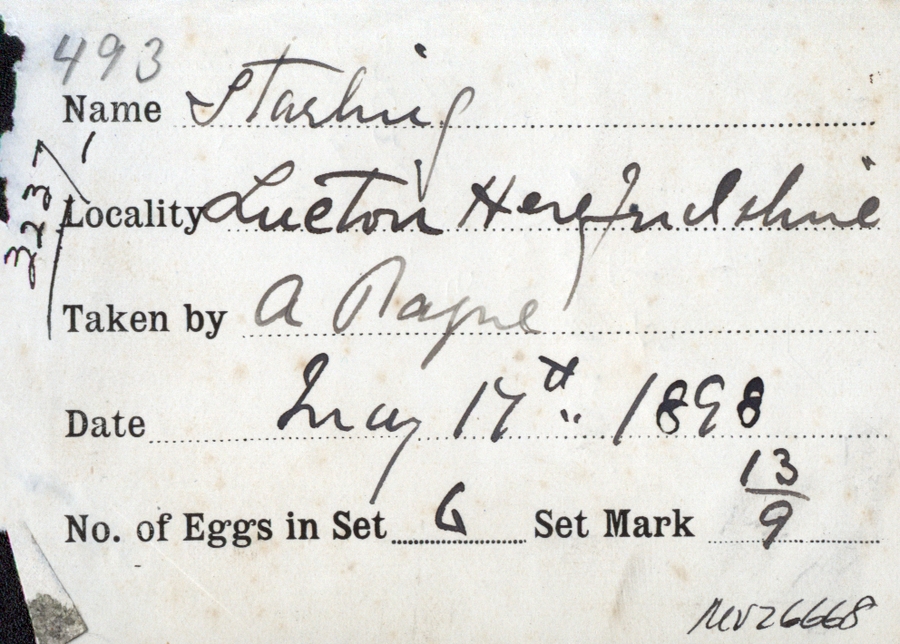 493
Name Starling
3237 /
Locality Lucton Herefordshire
Taken by A Payne
Date May 17th 1898
No. of Eggs in Set 6 Set Mark 13/9
MV26668